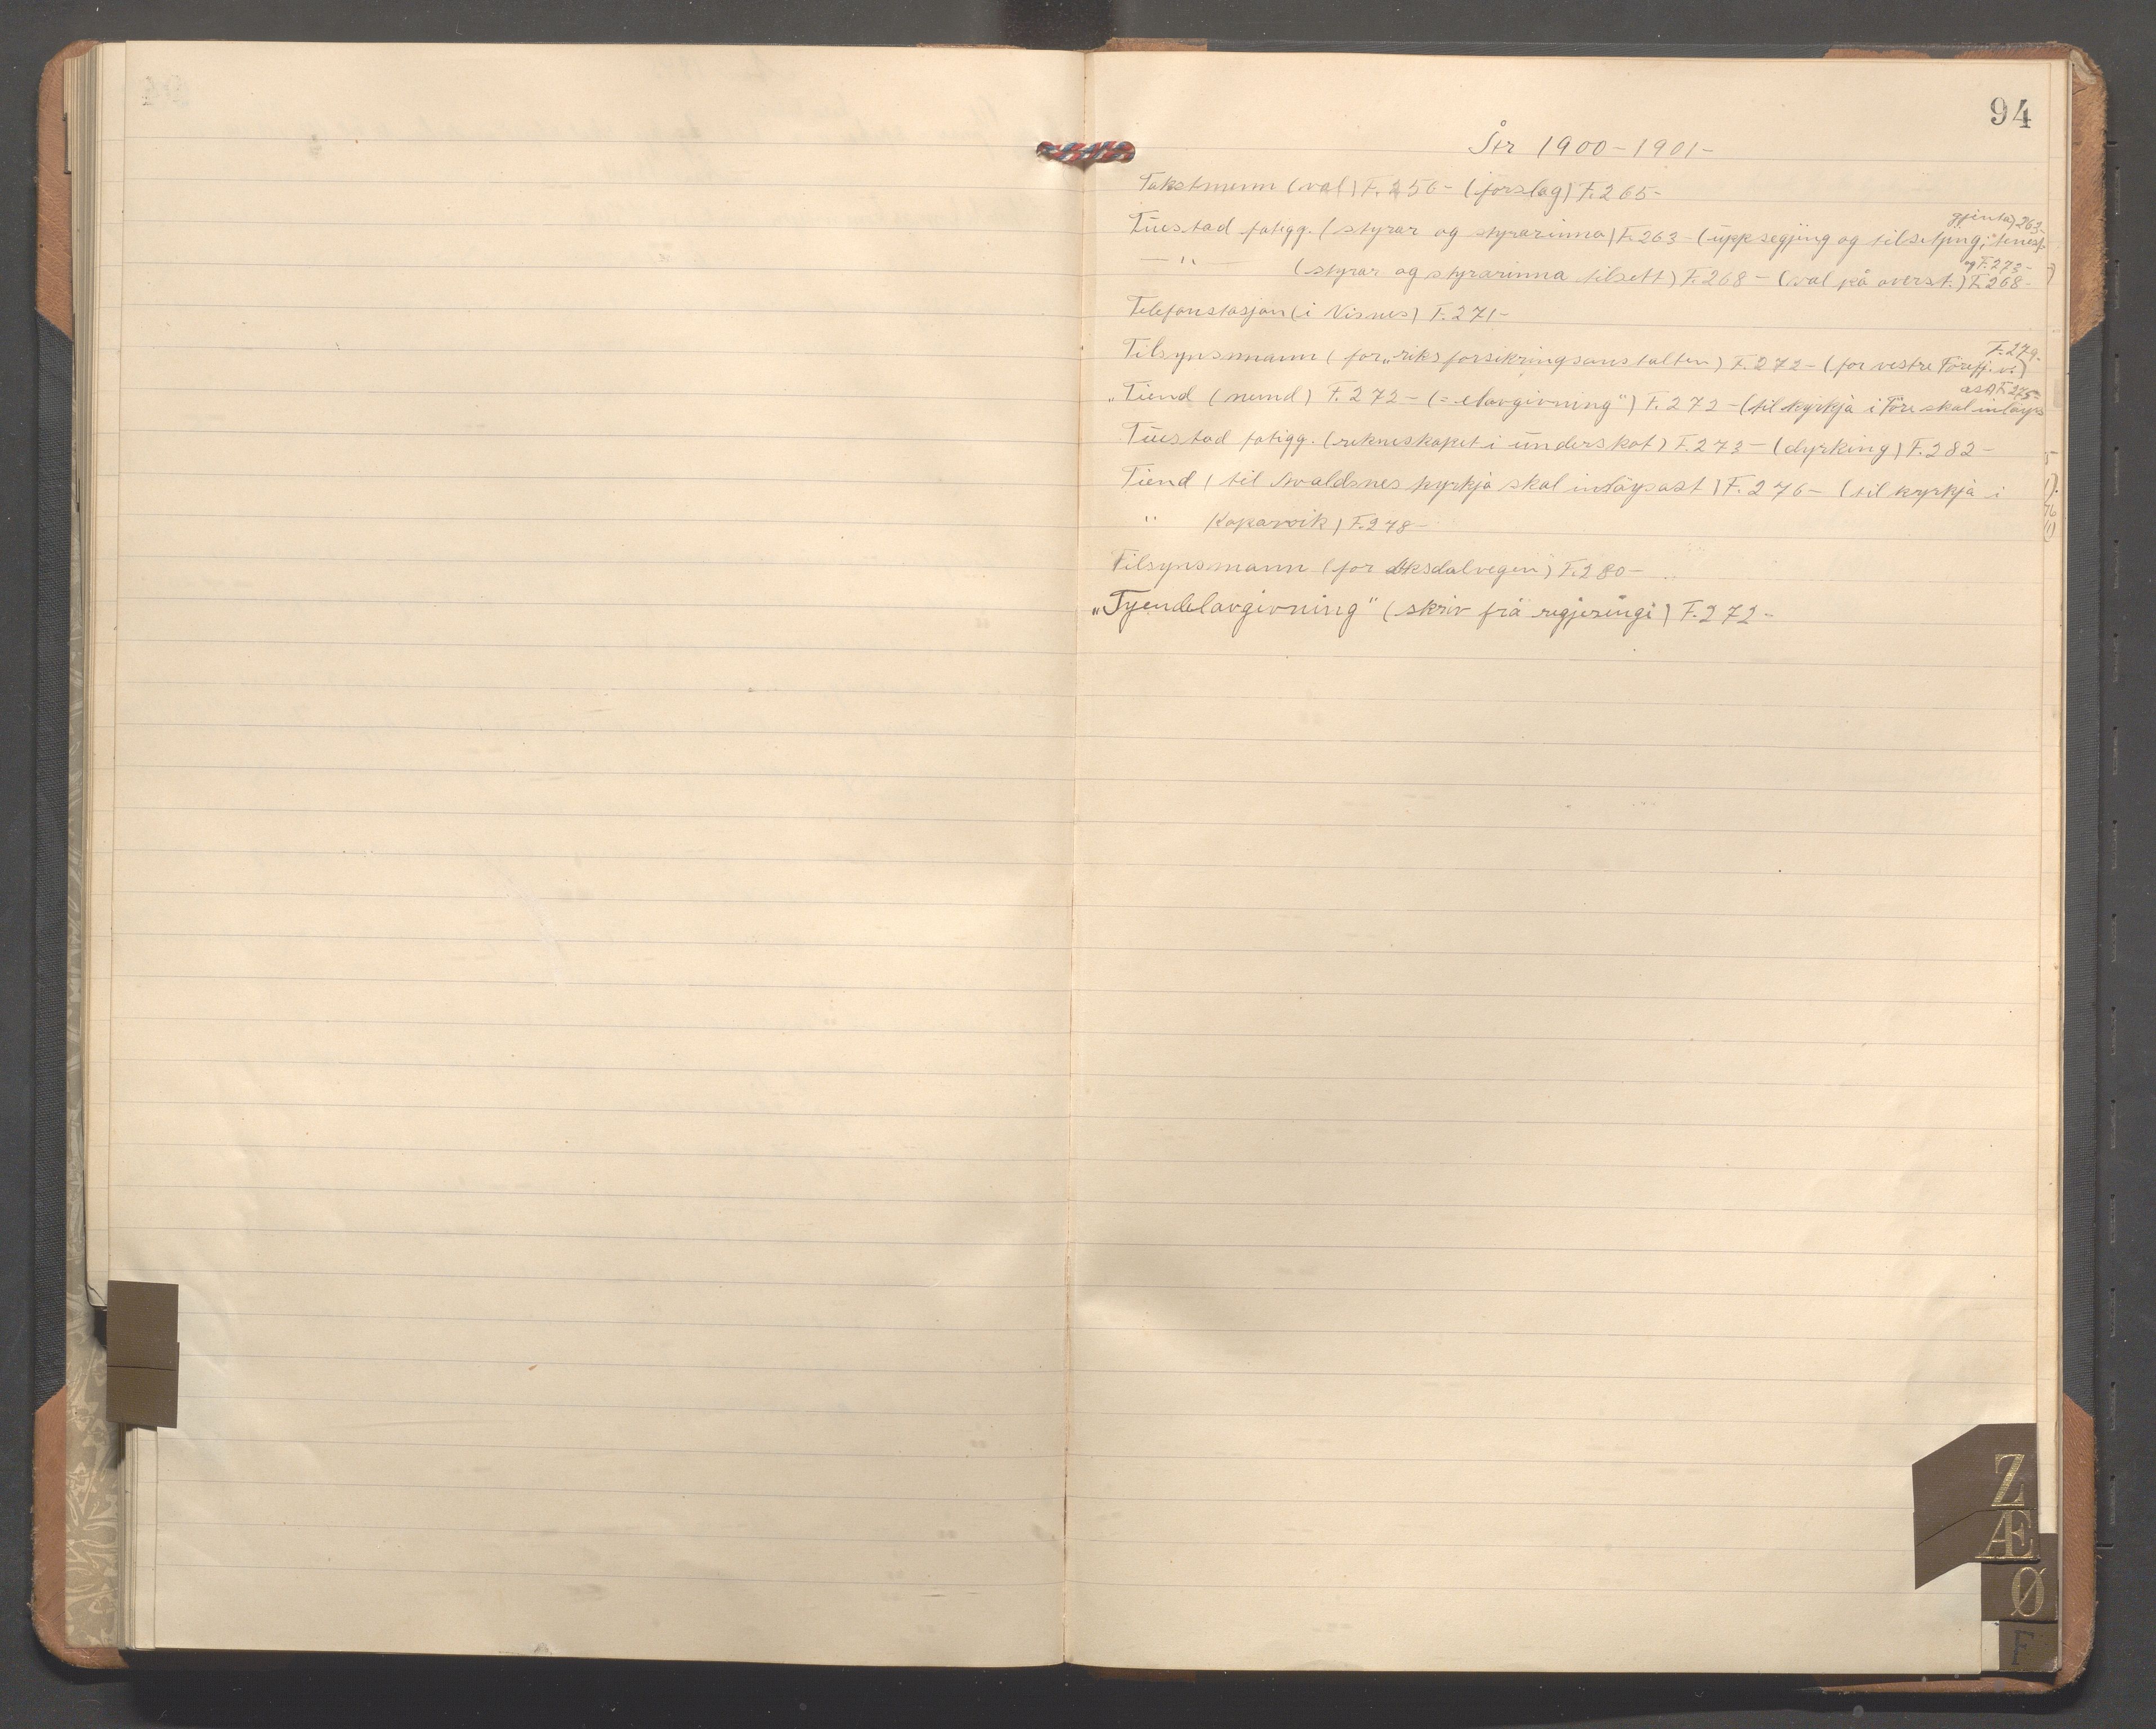 94
År 1900-1901-
Takstmenn (val) F. 256- (forslag) F. 265-
gjenta) 263-
Tuestad fatigg. (styrar og styrarinna) F. 263 - (uppsegjing og tilsetjing, tenest
F. 273-
-"- (styrar og styrarinna tilsett) F. 268 - (val på overst.) F. 268-
Telefonstasjon (i Visnes) F. 271-
F. 279.
Tilsynsmann (for „riksforsikringsanstalten) F. 272- (for vestre
ast) F. 275-
„Tiend (nemd) F. 272- (= elavgivning") F. 272 - (til kyrkja i Före skal inløys
Tuestad fatigg. (rekneskapet i underskot) F. 273- (dyrking) F. 282-
Tiend (til Avaldsnes kyrkja skal inløysast) F. 276- (til kyrkja i
" Kopervik) F. 278-
Tilsynsmann (for Aksdalvegen) F. 280-
„Tyendelavgivning" (skriv frå regjeringi) F. 272-
Z
Æ
Ø
F